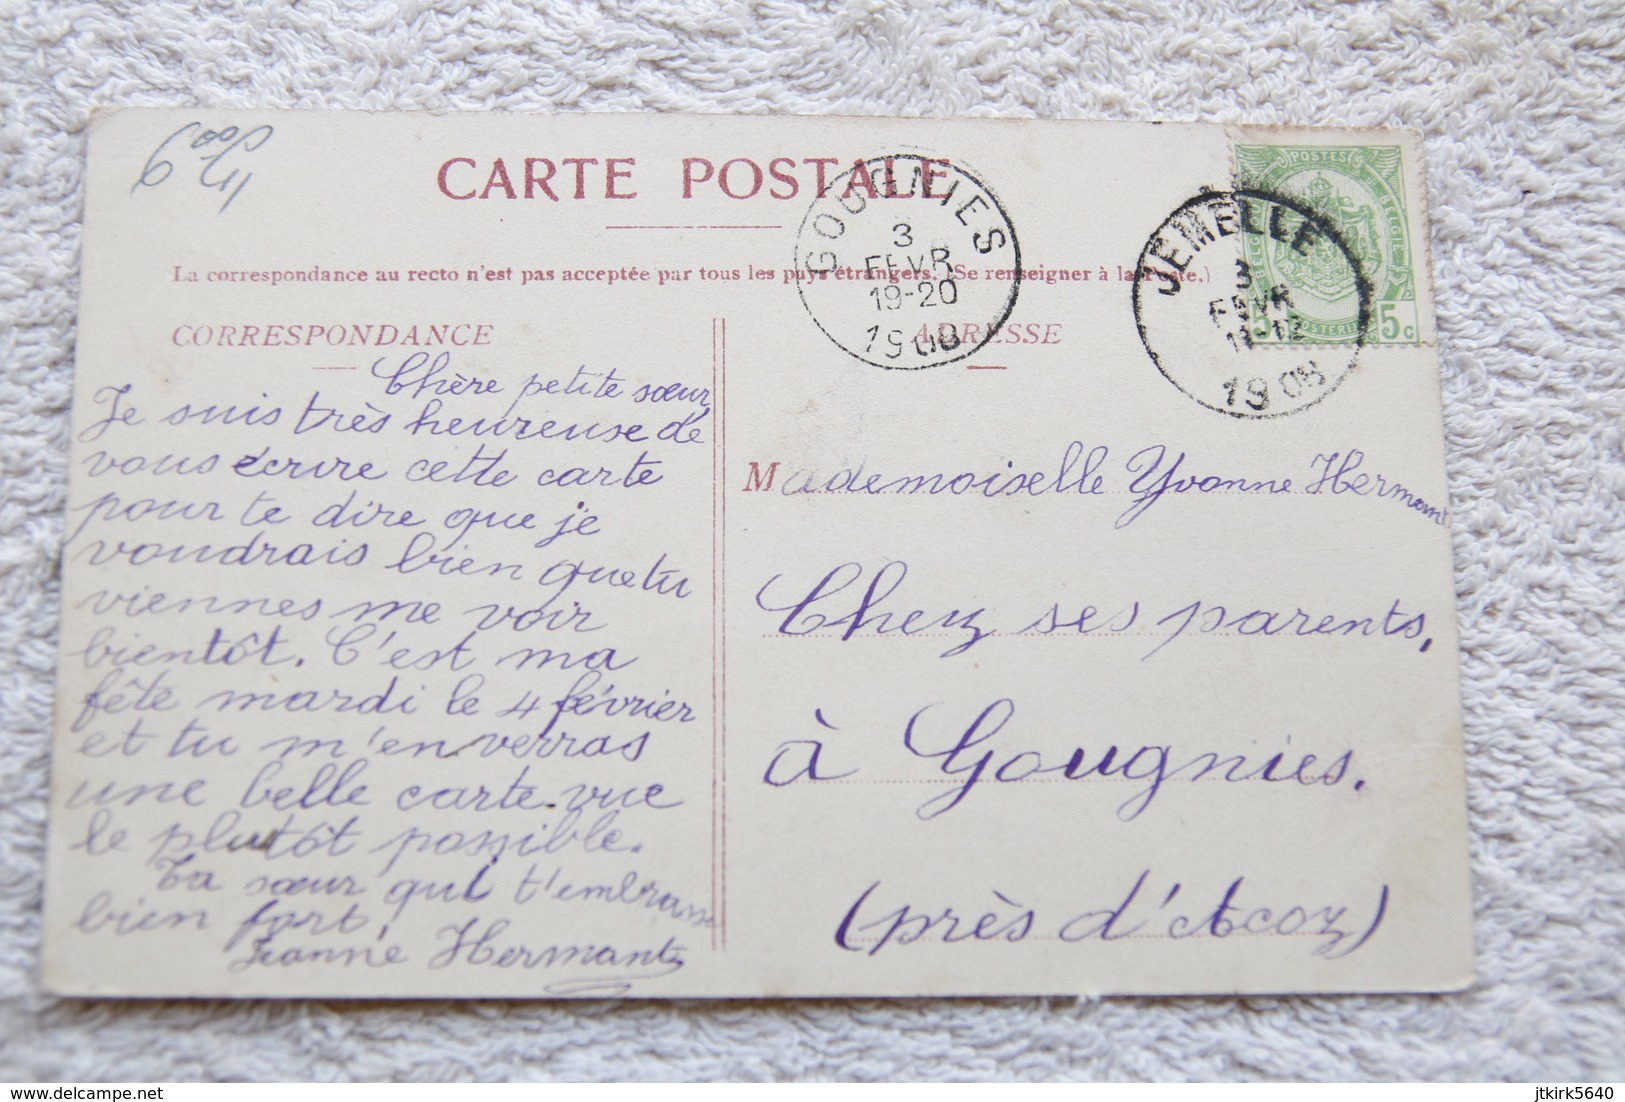 CARTE POSTALE
La correspondance au recto n'est pas acceptée par tous les pays étrangers. (Se renseigner à la Poste.)
CORRESPONDANCE
Chère petite sœur,
Je suis très heureuse de
vous écrire cette carte
pour te dire que je
voudrais bien que tu
viennes me voir
bientôt. C'est ma
fête mardi le 4 février
et tu m'enverras
une belle carte-vue
le plutôt possible.
Ta sœur qui t'embrasse
bien fort,
Jeanne Hermant
ADRESSE
Mademoiselle Yvonne Hermant
Chez ses parents,
à Gougnies.
(près d'Acoz)
GOUGNIES
3
FEVR
19-20
1908
JEMELLE
3
FEVR
11-12
1908
POSTES
5 5c
jtkirk5640